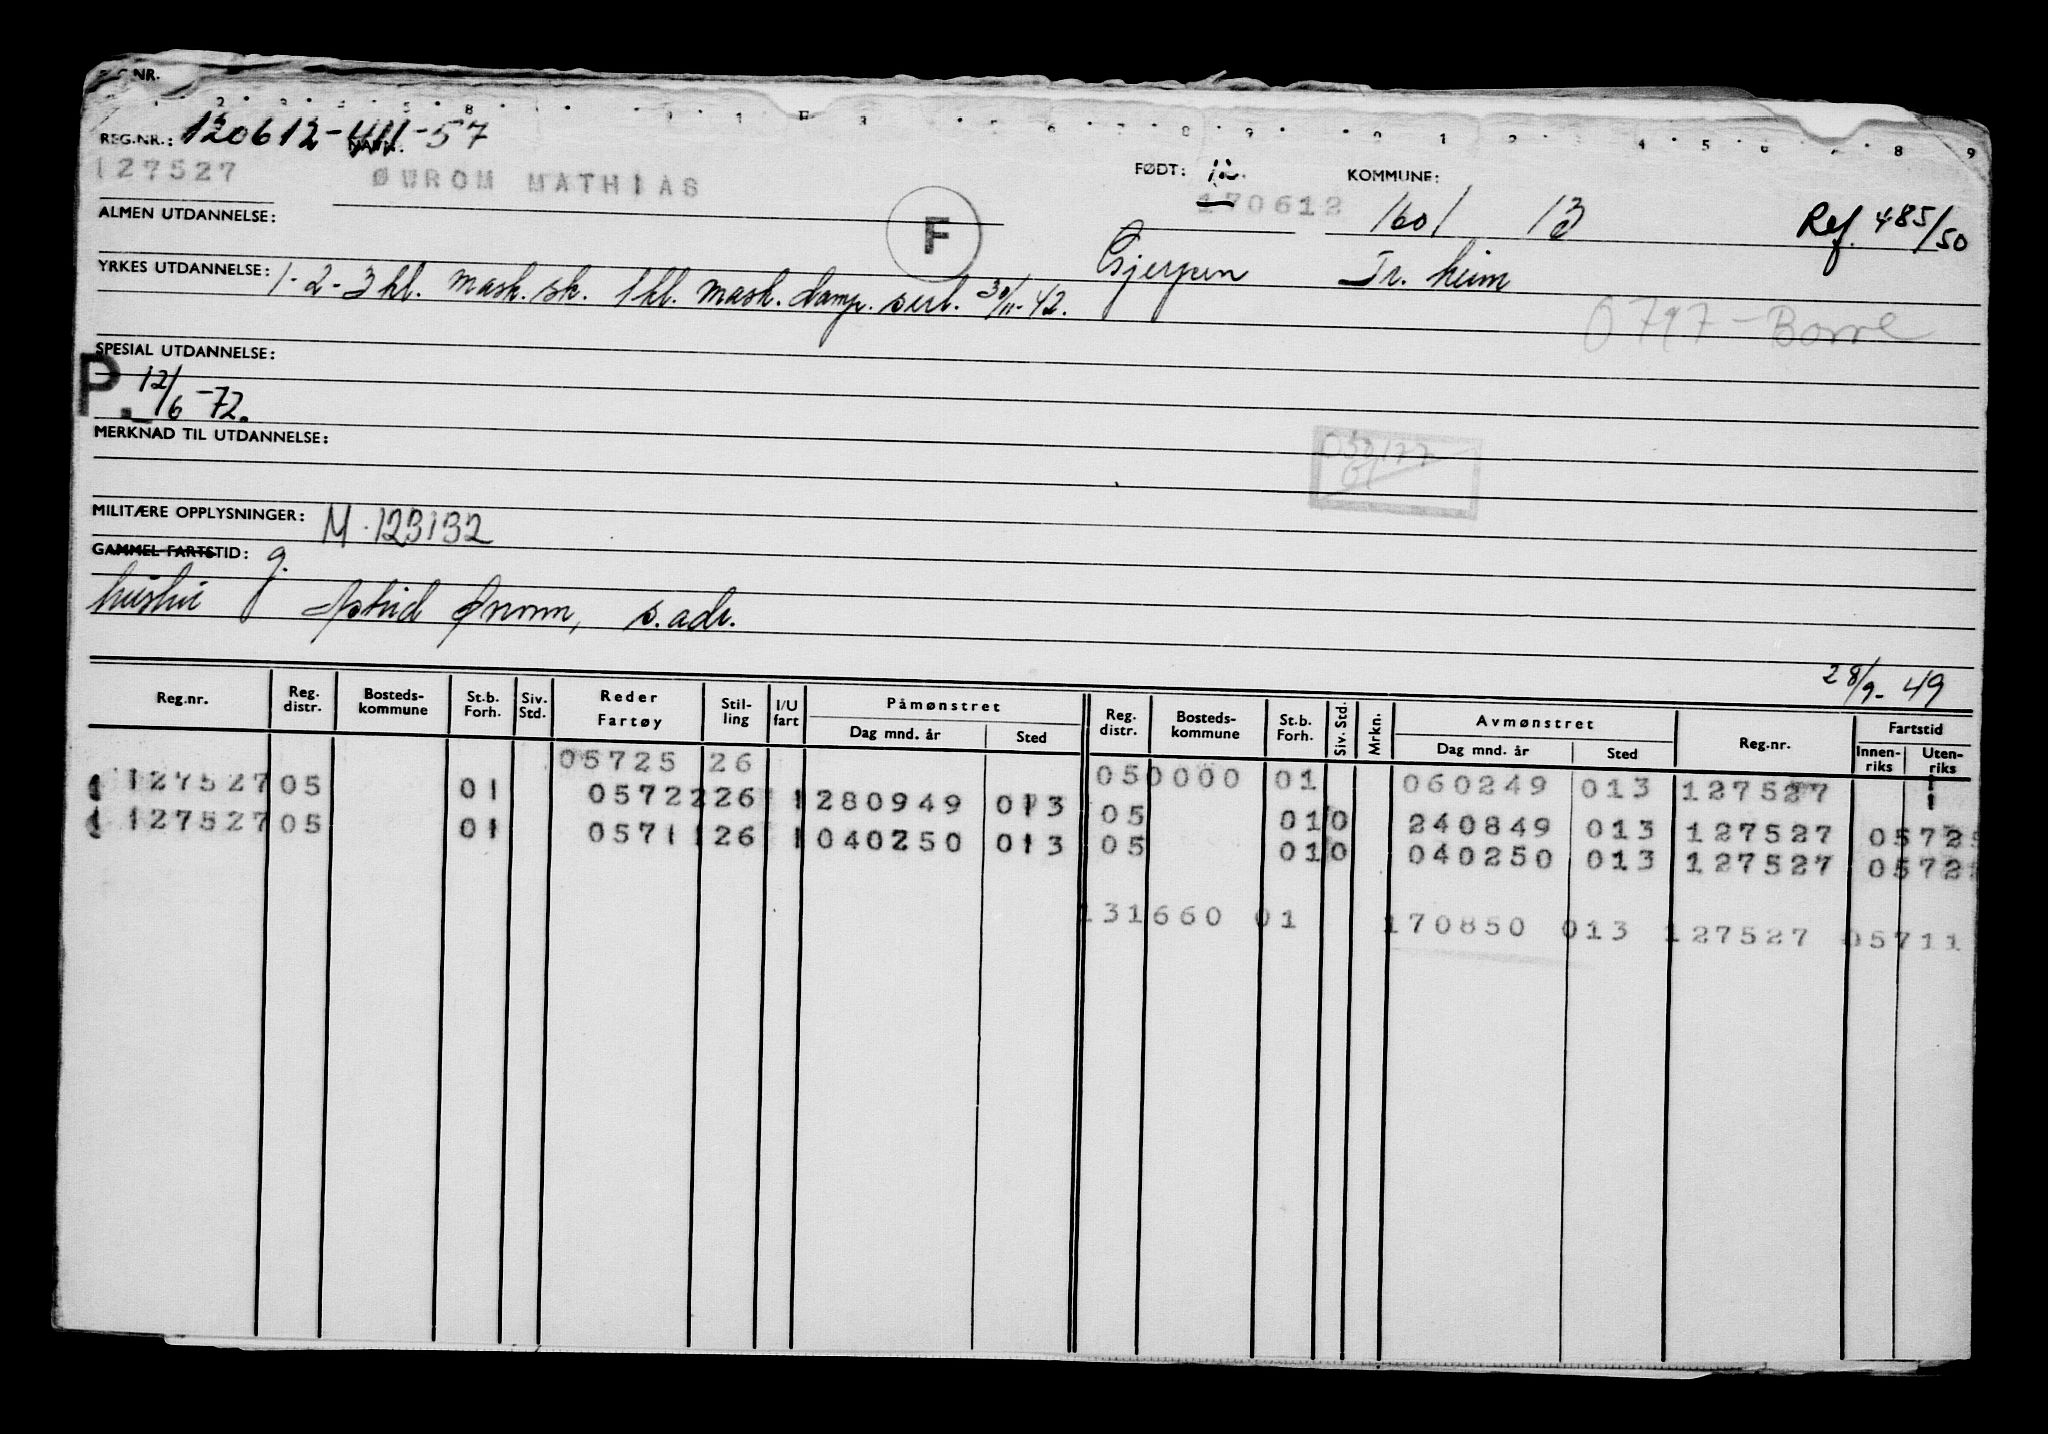 NR.
REG.NR.: 120612-441-57
127527 ØWROM MATHIAS FØDT: 12. 170612 KOMMUNE: 1601 13 Ref. 485/50
ALMEN UTDANNELSE: F Gjerpen Tr. heim
YRKES UTDANNELSE: 1-2-3 kl. mask. sk. 1 kl. mask. damp. sert. 30/11-42.
0797-Borre
SPESIAL UTDANNELSE:
P. 12/6-72.
MERKNAD TIL UTDANNELSE:
MILITÆRE OPPLYSNINGER: M.123132
GAMMEL FARTSTID: g.
hustru Astrid Øvrom, s. adr.
28/9-49
Reg.nr. Reg. distr. Bosteds-kommune St.b. Forh. Siv. Std. Reder Fartøy Stil-ling I/U fart Påmønstret Dag mnd. år Sted Reg. distr. Bosteds-kommune St.b. Forh. Siv. Std. Mrkn. Avmønstret Dag mnd. år Sted Reg.nr. Fartstid Innen-riks Uten-riks
05725 26 050000 01 060249 013 127527
127527 05 01 05722 26 1 280949 013 05 01 0 240849 013 127527 05725
127527 05 01 05711 26 1 040250 013 05 01 0 040250 013 127527 0572
131660 01 170850 013 127527 05711